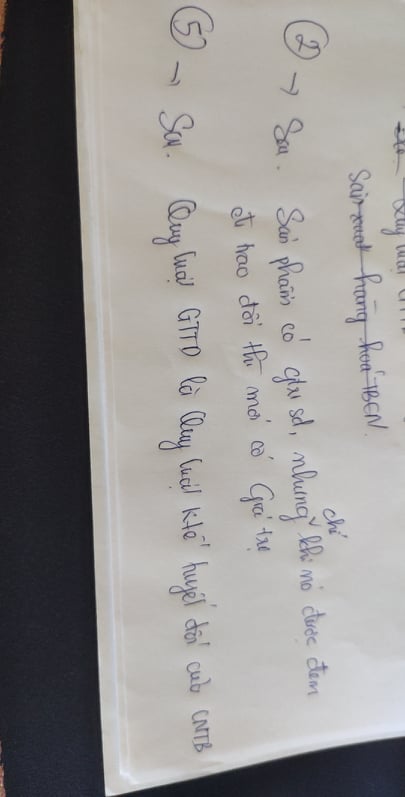 Quy luật GTTD
Sản xuất hàng hoá TBCN.
② → Sai. Sản phẩm có gtri sd, nhưng chỉ khi nó được đem
đi trao đổi thì mới có Giá trị
⑤ → Sai. Quy luật GTTD là Quy luật ktế tuyệt đối của CNTB